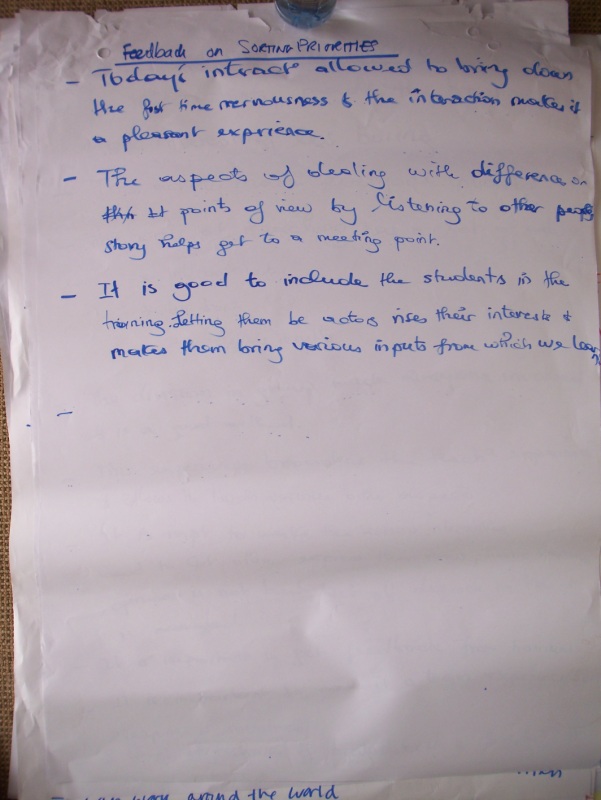 Feedback on SORTING PRIORITIES
- Today's interact allowed to bring down
the first time nervousness & the interaction makes it
a pleasant experience.
- The aspects of dealing with difference on
points of view by listening to other people
story helps get to a meeting point.
- It is good to include the students in the
training. Letting them be actors rises their interest &
makes them bring various inputs from which we learn
-
around the world